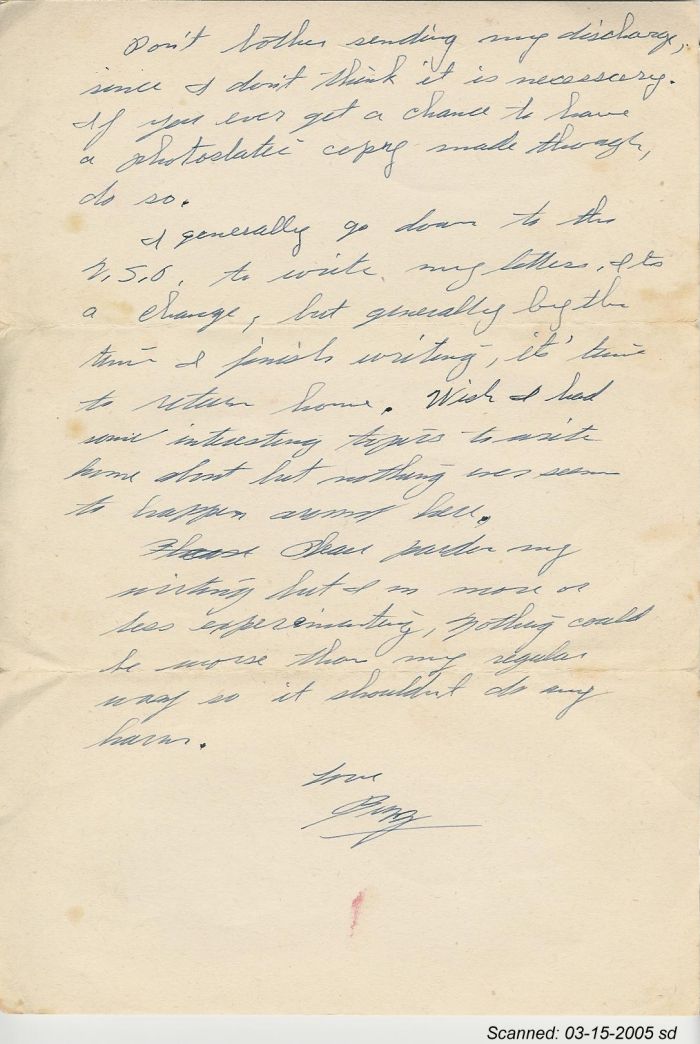 Don't bother sending my discharge,
since I don't think it is necessary.
If you ever get a chance to have
a photostatic copy made though,
do so.
I generally go down to the
U.S.O. to write my letters, its
a change, but generally by the
time I finish writing, it's time
to return home. Wish I had
some interesting topics to write
home about but nothing ever seem
to happen around here.
Please Please pardon my
writing but I'm more or
less experimenting, Nothing could
be worse than my regular
way so it shouldn't do any
harm.
Love
Scanned: 03-15-2005 sd